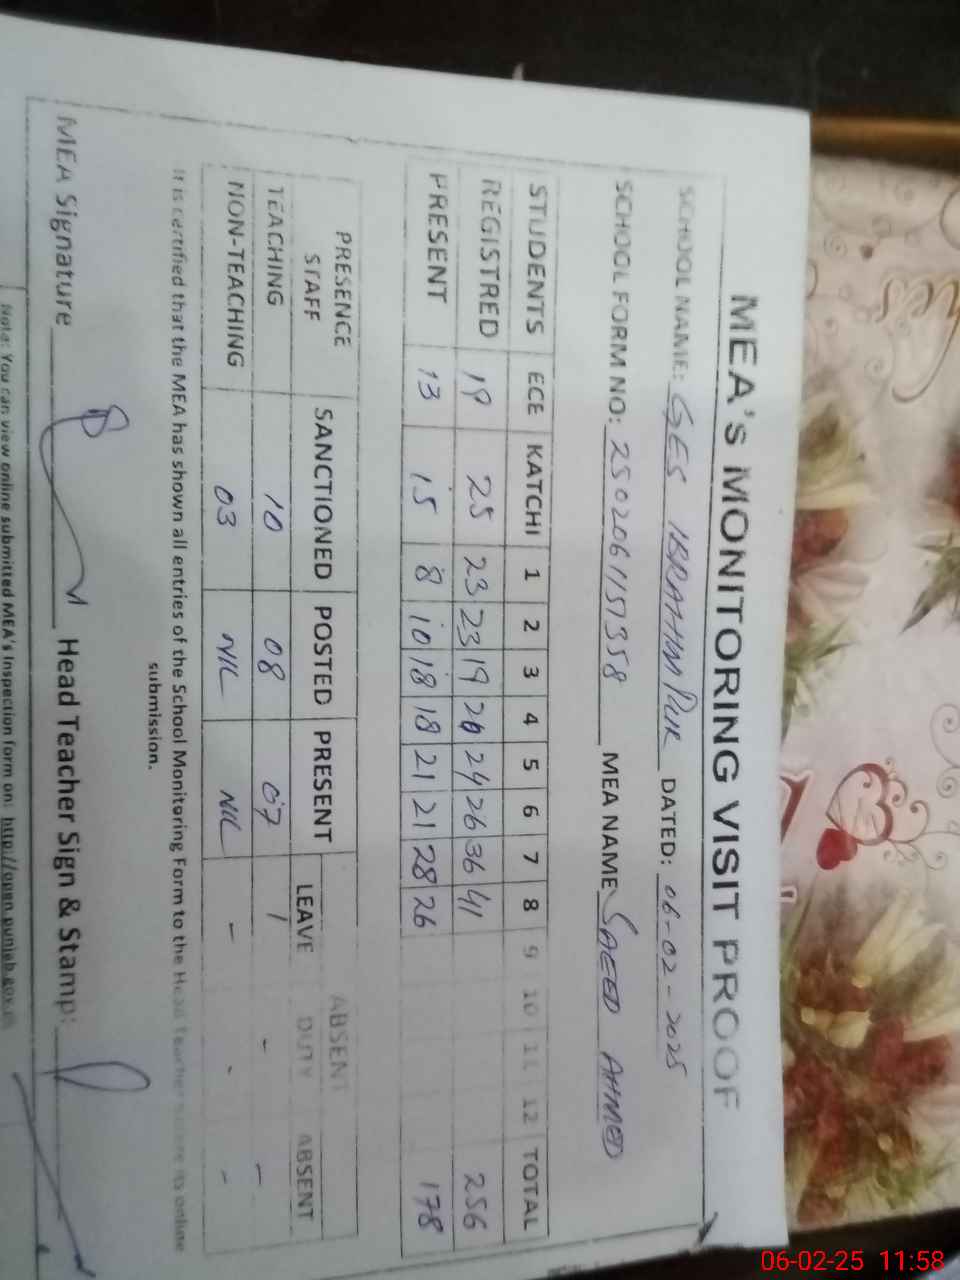 MEA's MONITORING VISIT PROOF
SCHOOL NAME: GES IBRAHIM PUR DATED: 06-02-2025
SCHOOL FORM NO: 2502061157358 MEA NAME SAEED AHMED
STUDENTS ECE KATCHI 1 2 3 4 5 6 7 8 9 10 11 12 TOTAL
REGISTRED 19 25 23 23 19 20 24 26 36 41 256
PRESENT 13 15 8 10 18 18 21 21 28 26 178
PRESENCE STAFF SANCTIONED POSTED PRESENT ABSENT
LEAVE DUTY ABSENT
TEACHING 10 08 07 1 - -
NON-TEACHING 03 NIL NIL - - -
It is certified that the MEA has shown all entries of the School Monitoring Form to the Head Teacher before its online
submission.
MEA Signature Head Teacher Sign & Stamp:
Note: You can view online submitted MEA's Inspection form on: http://open.punjab.gov.pk
06-02-25 11:58